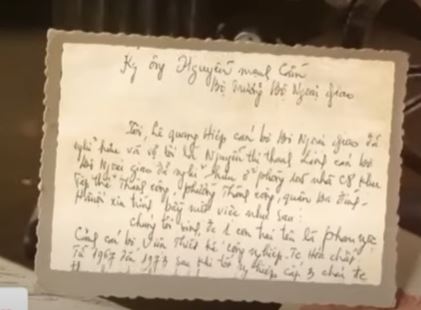 Kg ông Nguyễn mạnh Cầm
Bộ trưởng Bộ Ngoại giao
Tôi, Lê quang Hiệp cán bộ Bộ Ngoại giao đã
nghỉ hưu và vợ tôi là Nguyễn thị thanh cán bộ
Bộ Ngoại giao đã nghỉ hưu ở phòng nhà C8 khu
tập thể Thành công phường Thành công, quận Ba đình
Hà nội xin trình bày một việc như sau:
Chúng tôi có 1 con trai tên là
cán bộ Viện Thiết kế công nghiệp Hóa chất
Từ 1967 đến 1973 sau khi tốt nghiệp cấp 3